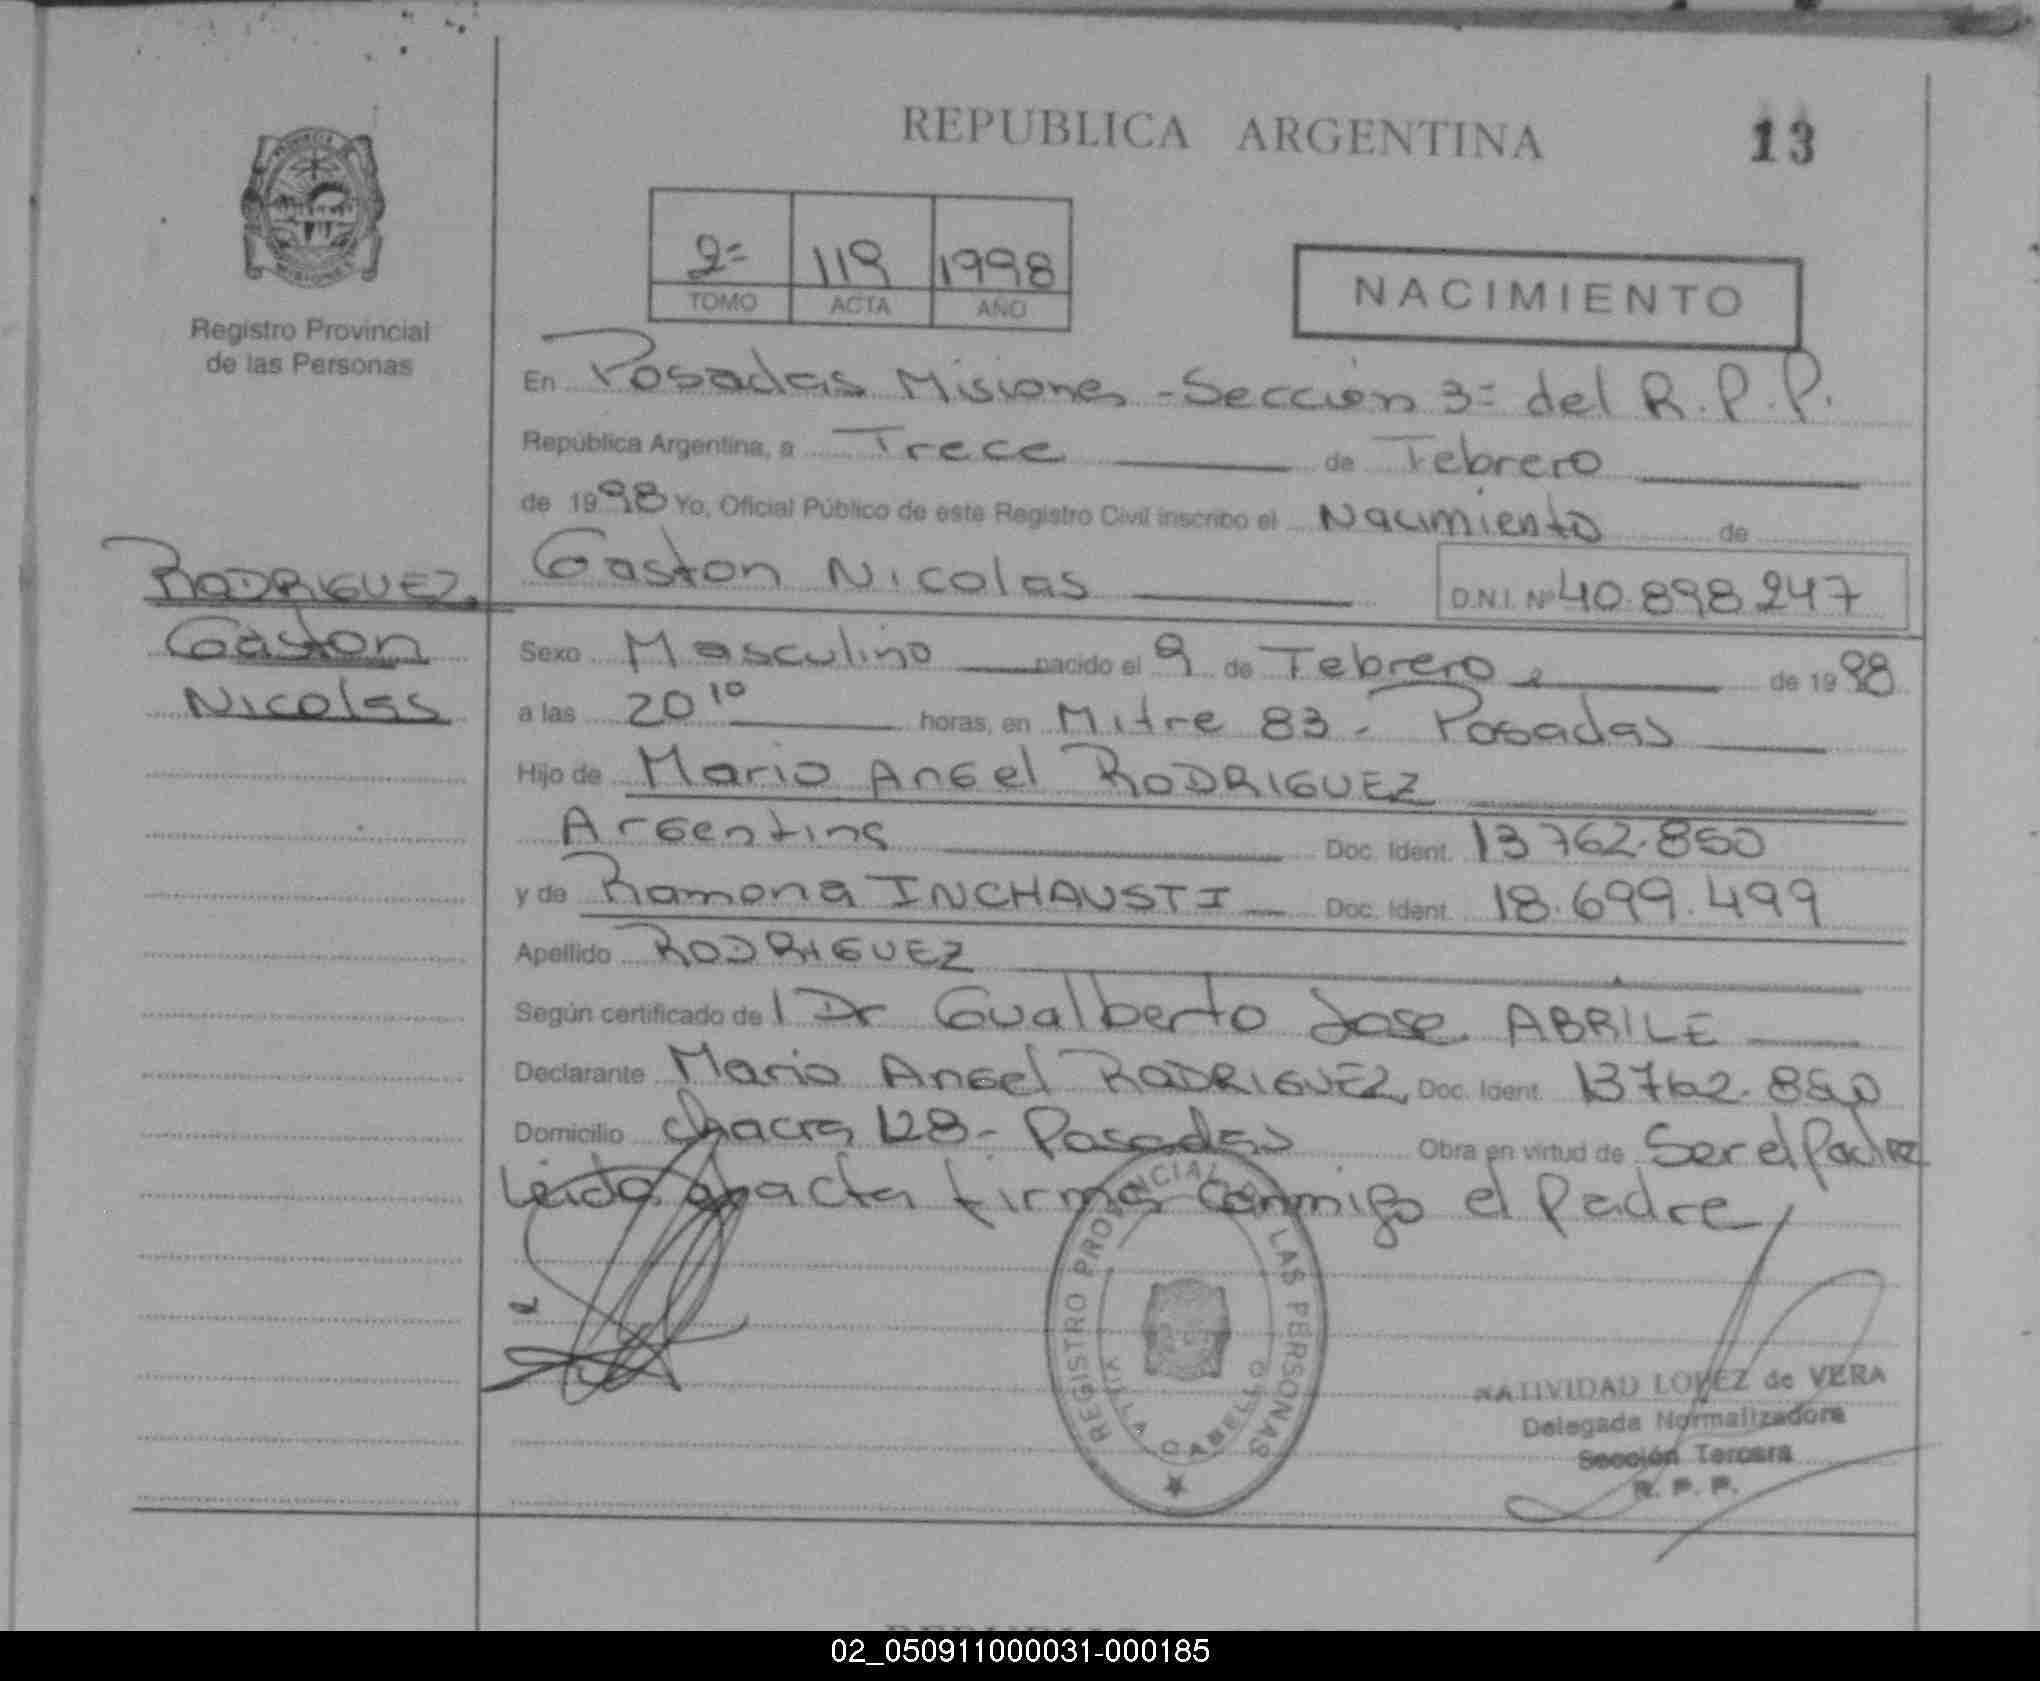 REPUBLICA ARGENTINA
13
2=
119
1998
TOMO
ACTA
AÑO
NACIMIENTO
Registro Provincial
de las Personas
En Posadas Misiones - Sección 3= del R.P.P.
República Argentina, a Trece de Febrero
de 1998 Yo, Oficial Público de este Registro Civil inscribo el Nacimiento de
RODRIGUEZ,
Gaston
Nicolas
Gaston Nicolas
D.N.I. Nº 40.898.247
Sexo Masculino nacido el 9 de Febrero de 1998
a las 20 10 horas, en Mitre 83 - Posadas
Hijo de Mario Angel RODRIGUEZ
Argentina Doc. Ident. 13762.850
y de Ramona INCHAUSTI Doc. Ident. 18.699.499
Apellido RODRIGUEZ
Según certificado de l Dr Gualberto Jose ABRILE
Declarante Mario Angel RODRIGUEZ, Doc. Ident. 13762.850
Domicilio Chacra 128 - Posadas Obra en virtud de Ser el Padre
Leida acta firma conmigo el Padre
REGISTRO PROVINCIAL LAS PERSONAS
VILLA CABELLO
NATIVIDAD LOPEZ de VERA
Delegada Normalizadora
Sección Tercera
R. P. P.
02_050911000031-000185